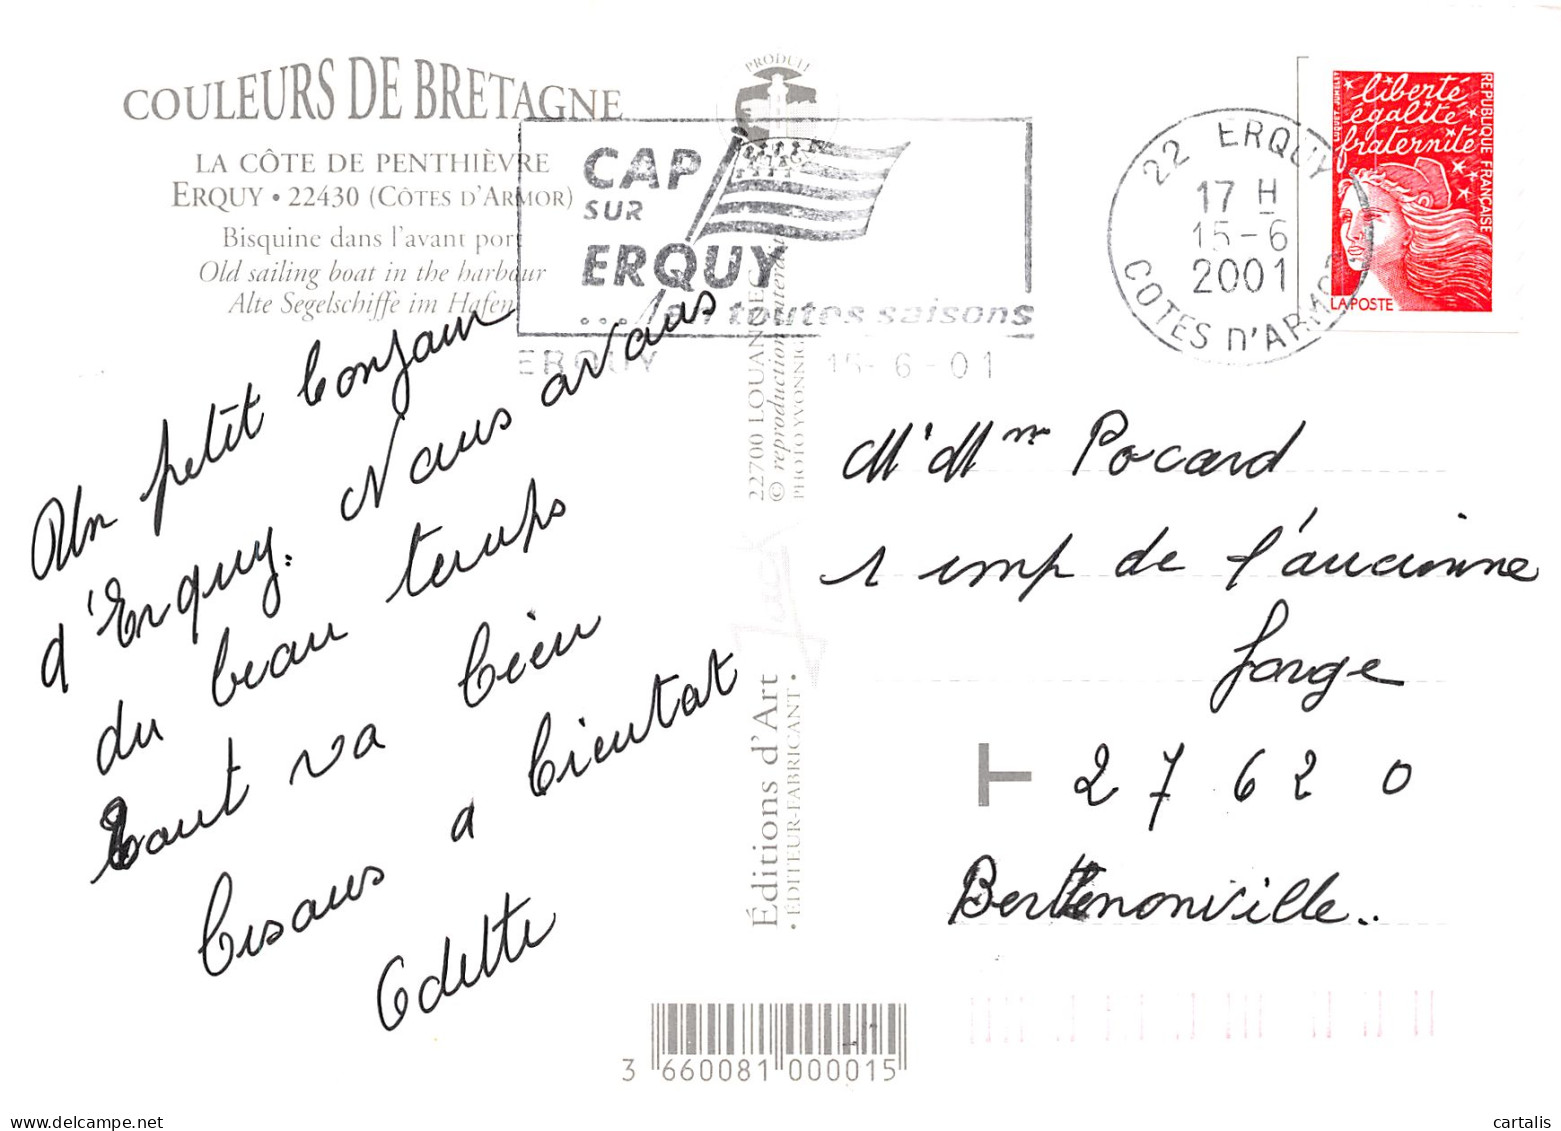 COULEURS DE BRETAGNE
LA CÔTE DE PENTHIÈVRE
ERQUY • 22430 (CÔTES D'ARMOR)
Bisquine dans l'avant port
Old sailing boat in the harbour
Alte Segelschiffe im Hafen
PRODUIT
CAP
SUR
ERQUY
... en toutes saisons
ERQUY 15-6-01
22 ERQUY
17 H
15-6
2001
COTES D'ARMOR
liberté
égalité
fraternité
REPUBLIQUE FRANÇAISE
LUQUET JUMELET
LA POSTE
Un petit bonjour
d'Erquy. Nous avons
du beau temps
tout va bien
bisous a bientat
Odette
22700 LOUANNEC
© reproduction interdite
PHOTO YVONNIG
Jack
Éditions d'Art
• ÉDITEUR-FABRICANT •
M. Mme Pocard
1 imp de l'ancienne
forge
27620
Berthenonville..
3 660081 000015
cartalis